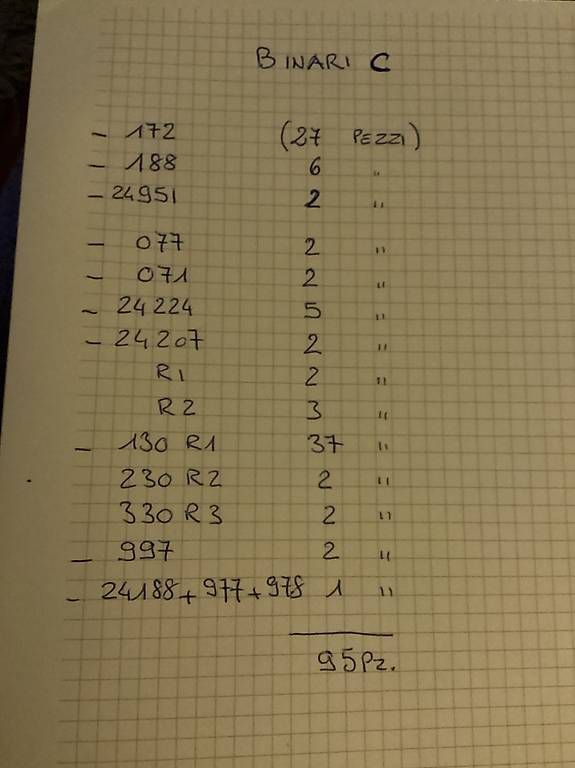 BINARI C
- 172 (27 PEZZI)
- 188 6 "
- 24951 2 "
- 077 2 "
- 071 2 "
- 24224 5 "
- 24207 2 "
R1 2 "
R2 3 "
- 130 R1 37 "
230 R2 2 "
330 R3 2 "
- 997 2 "
- 24188+977+978 1 "
95Pz.